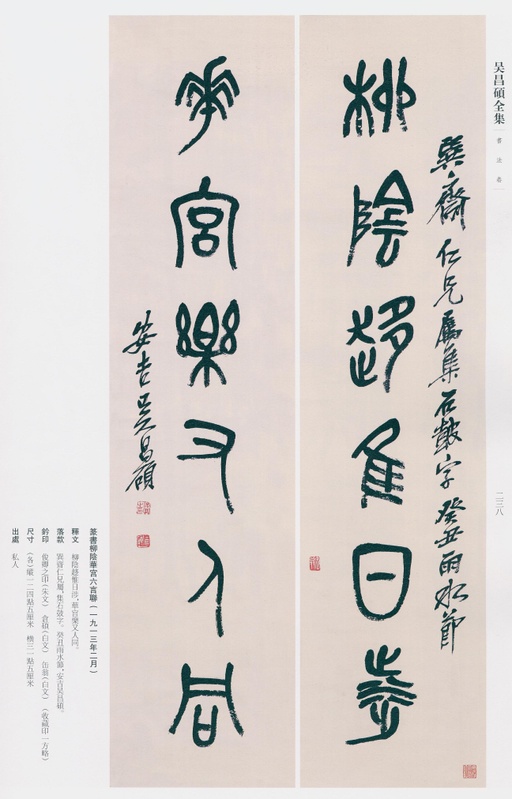 吴昌碩全集
書法卷
二三八
巽齋仁兄屬集石鼓字癸丑雨水節
柳陰趍隹日涉
華宮樂又人同
安吉吴昌碩
篆書柳陰華宮六言聯(一九一三年二月)
釋文 柳陰趍惟日涉,華宮樂又人同。
落款 巽齋仁兄屬,集石鼓字。癸丑雨水節,安吉吴昌碩。
鈐印 俊卿之印(朱文) 倉碩(白文) 缶翁(白文) (收藏印一方略)
尺寸 (各)縱一二四點五厘米 橫三一點五厘米
出處 私人